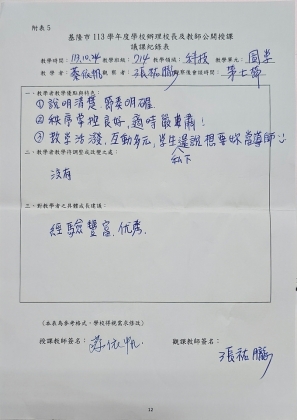 附表 5
基隆市 113 學年度學校辦理校長及教師公開授課
議課紀錄表
教學時間：113.10.24 教學班級：714 教學領域：科技 教學單元：
教 學 者：蔡依帆 觀 察 者：張祐騰 觀察後會談時間：第七節
一、教學者教學優點與特色：
① 說明清楚，節奏明確
② 秩序掌控良好，適時嚴肅！
③ 教學活潑，互動多元，學生還說想要妳當導師
私下
二、教學者教學待調整或改變之處：
沒有
三、對教學者之具體成長建議：
經驗豐富，優秀。
（本表為參考格式，學校得視需求修改）
授課教師簽名：蔡依帆 觀課教師簽名：
張祐騰
12